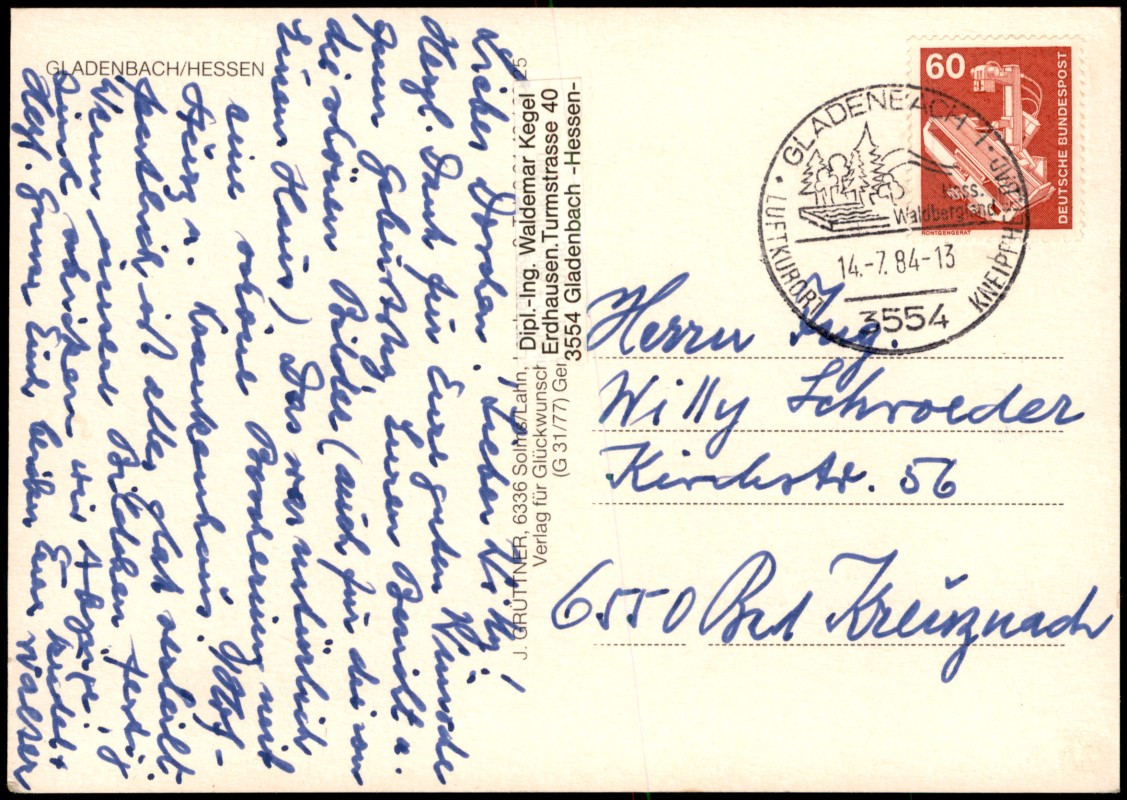 GLADENBACH/HESSEN
Liebes Dorchen, Lieber Willy!
Herzl. Dank für Eure guten Wünsche
zum Geburtstag, Euren Bericht u.
die schönen Bilder (auch für die von
Eurem Haus) Das war natürlich
eine schöne Bescherung mit
Herz u. Krankenhaus. Hof-
fentlich ist alles glat verheilt
Wenn unsere Bildchen fertig
sind schicken wir Abzüge.
Herzl. Grüsse Euch beiden Eure
Walser
J. GRUTTNER, 6336 Solms/Lahn,
Verlag für Glückwunsch
(G 31/77) Ger
25
Dipl.-Ing. Waldemar Kegel
Erdhausen.Turmstrasse 40
3554 Gladenbach -Hessen-
60
DEUTSCHE BUNDESPOST
RÖNTGENGERÄT
GLADENBACH 1
LUFTKURORT
KNEIPPH
Hess.
Waldbergland
14.-7.84-13
3554
Herrn Ing.
Willy Schroeder
Kirchstr. 56
6550 Bad Kreuznach